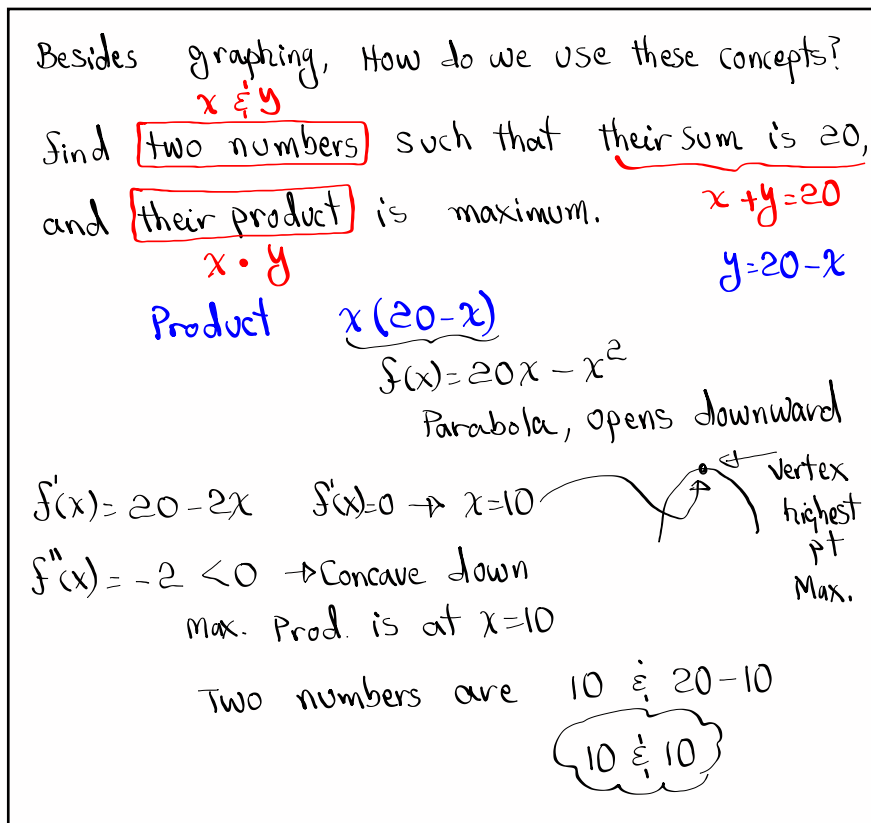 Besides graphing, How do we use these concepts?
x & y
find two numbers such that their sum is 20,
and their product is maximum.
x + y = 20
x • y
y = 20 - x
Product x(20-x)
f(x) = 20x - x²
Parabola, opens downward
Vertex
highest
pt
Max.
f'(x) = 20 - 2x f'(x)=0 → x=10
f"(x) = -2 < 0 → Concave down
Max. Prod. is at x=10
Two numbers are 10 & 20-10
10 & 10